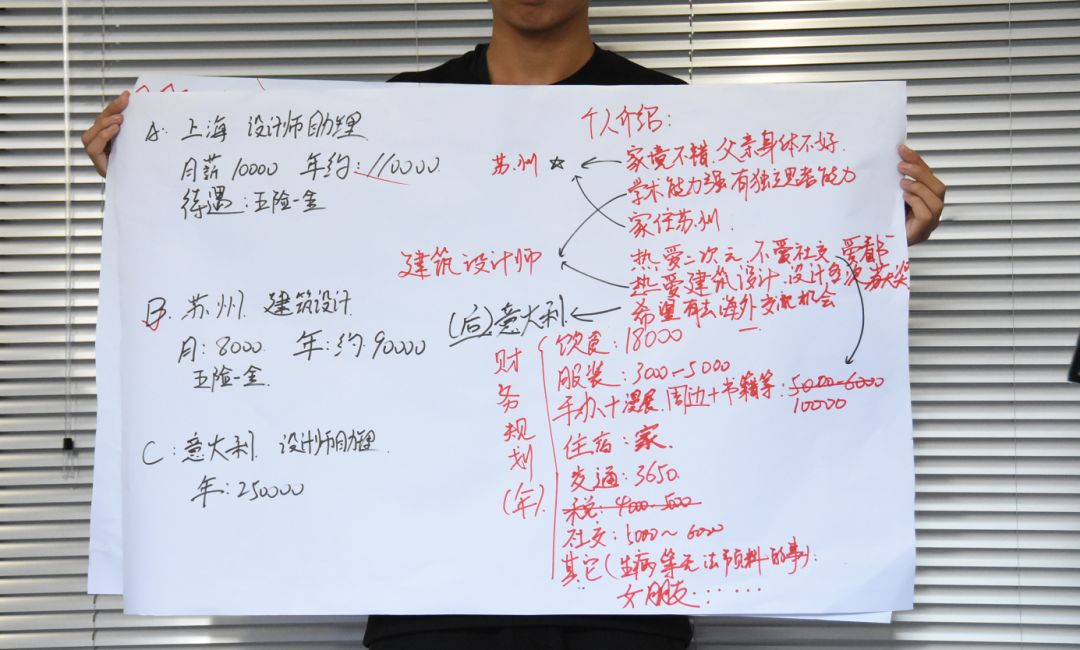 A: 上海 设计师助理
月薪 10000 年约:110000
待遇:五险一金
B. 苏州 建筑设计
月:8000 年:约90000
五险一金
C:意大利 设计师助理
年:250000
个人介绍:
苏州 ☆ ← 家境不错.父亲身体不好.
学术能力强 有独立思考能力
家住苏州.
建筑设计师
热爱二次元.不爱社交
热爱建筑设计.设计
(后)意大利 ← 希望有去海外交流机会
财务规划(年)
饮食:18000
服装:3000-5000
手办+漫展.周边+书籍等:5000-6000
10000
住宿:家.
交通:3650.
税:4000-5000
社交:5000~6000
其它(生病等无法预料的事):
女朋友……